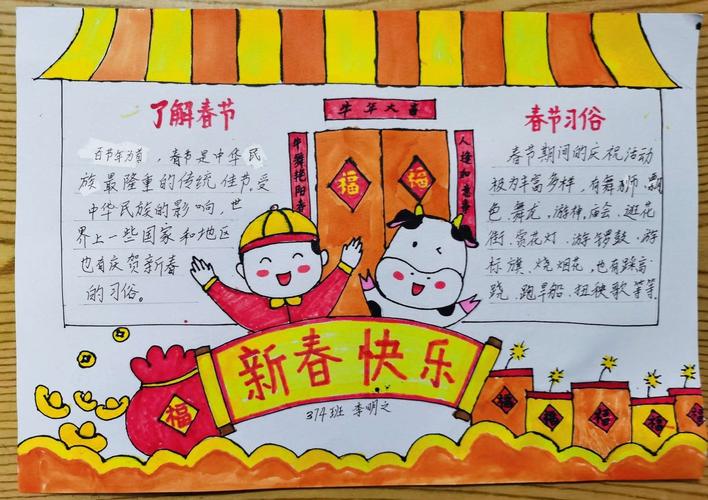 牛年大喜
牛舞艳阳春
福
福
了解春节
百节年为首，春节是中华民
族最隆重的传统佳节，受
中华民族的影响，世
界上一些国家和地区
也有庆贺新春
的习俗。
春节习俗
春节期间的庆祝活动
极为丰富多样，有舞狮、飘
色、舞龙、游神、庙会、逛花
街、赏花灯、游锣鼓、游
标旗、烧烟花、也有踩高
跷、跑旱船、扭秧歌等等。
新春快乐
374班 李明之
福
福
福
福
福
福